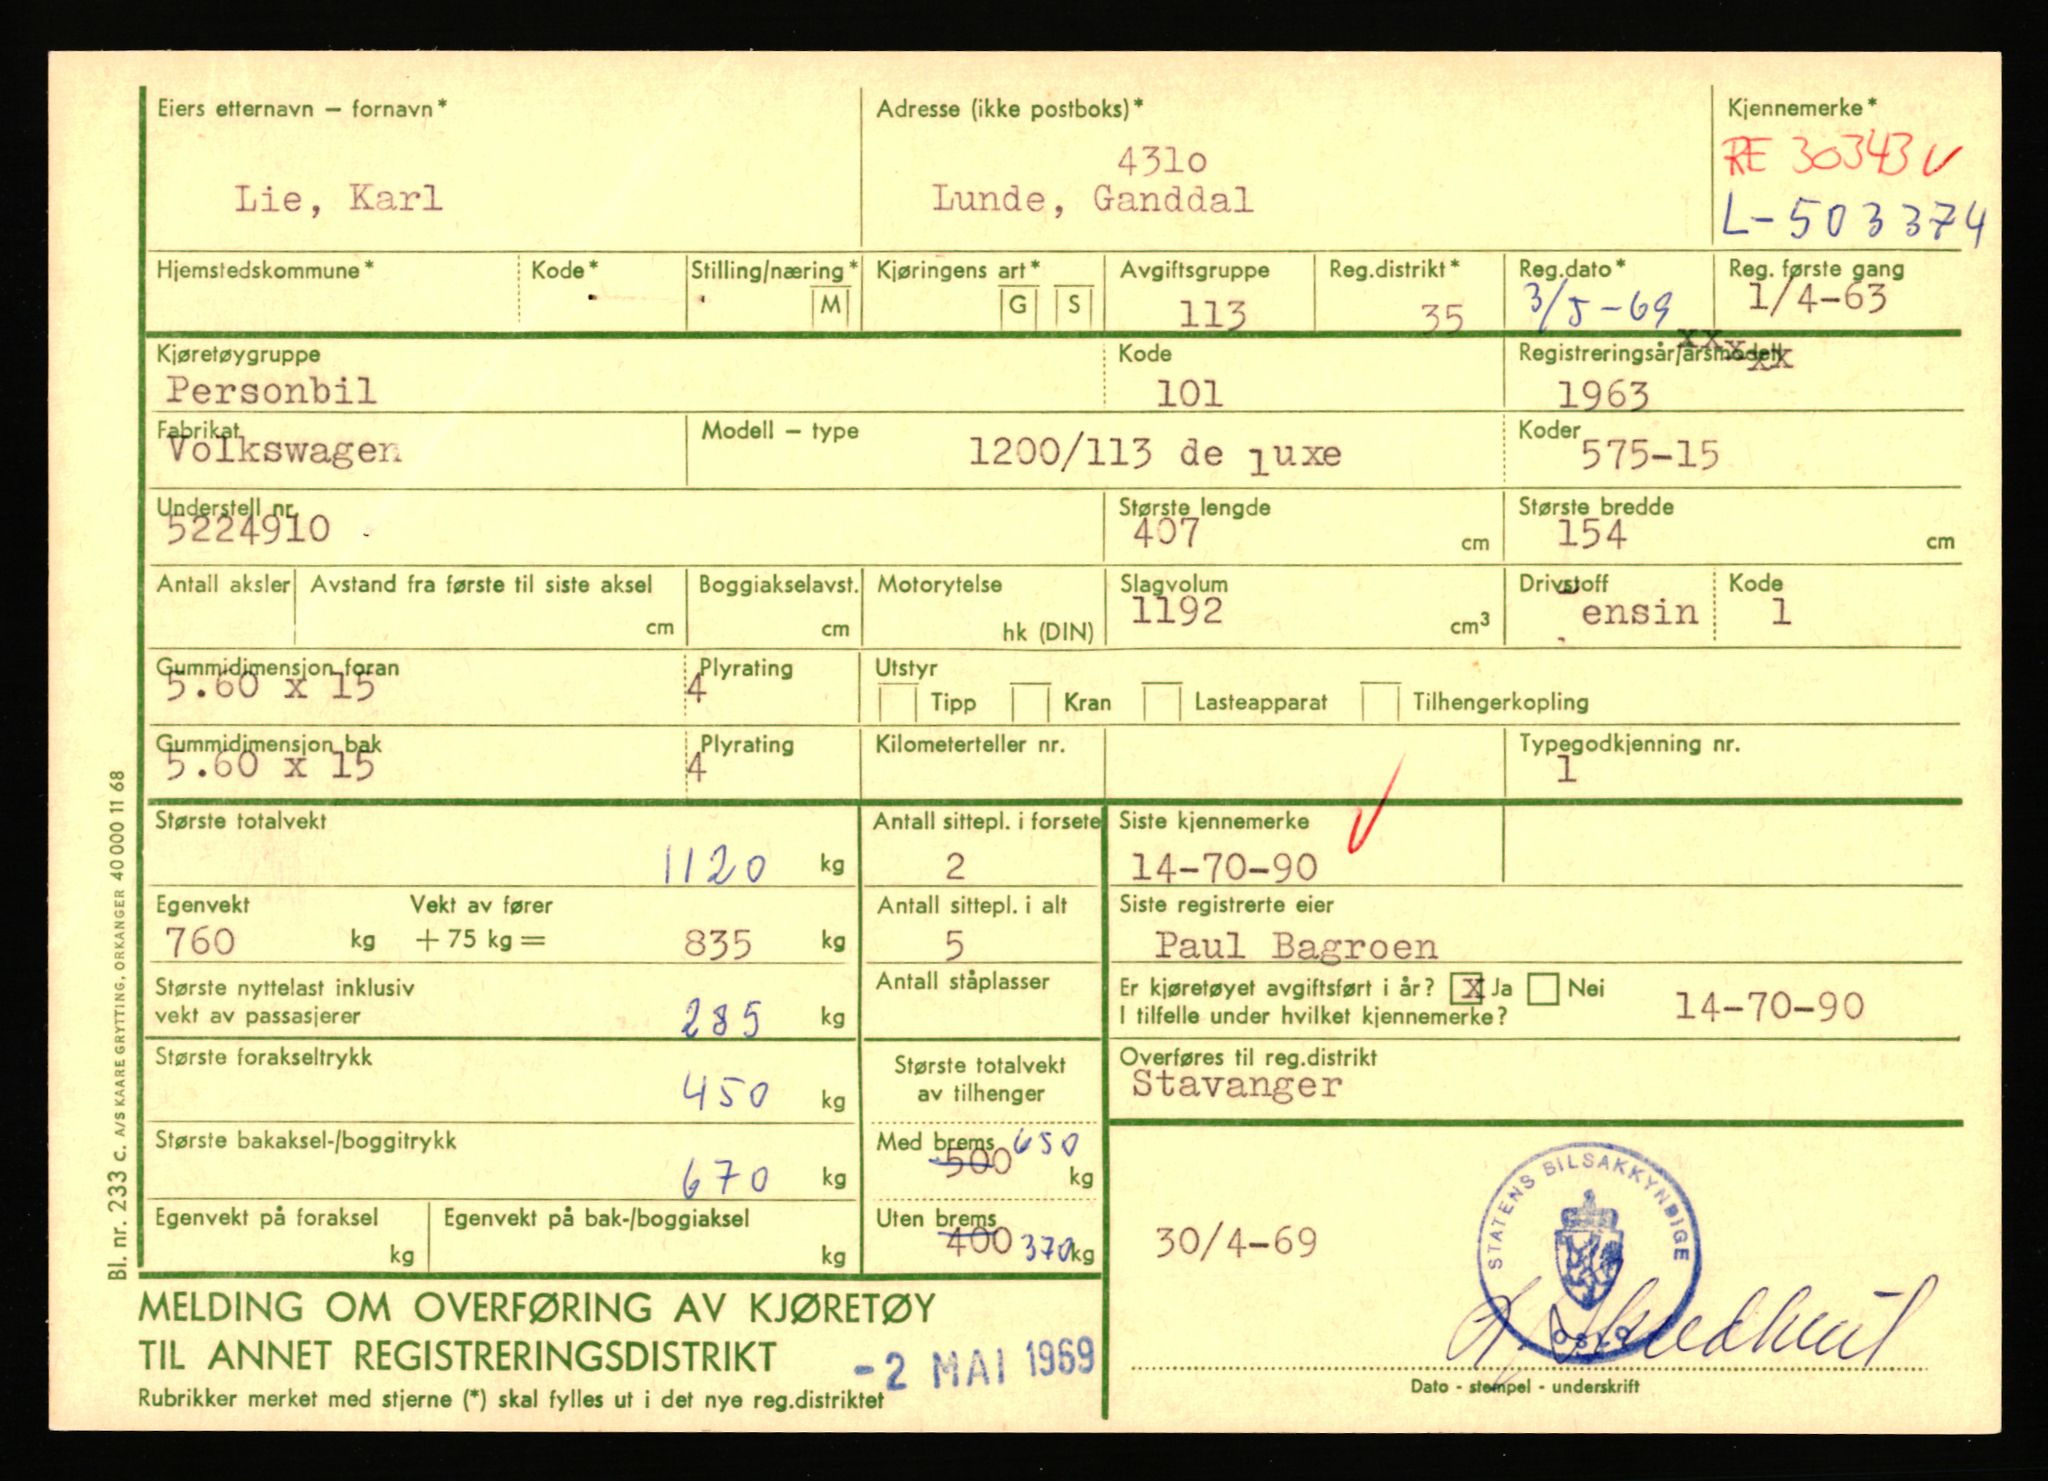 Eiers etternavn – fornavn*
Lie, Karl
Adresse (ikke postboks)*
431o
Lunde, Ganddal
Kjennemerke*
RE 30343 v
L-503374
Hjemstedskommune*
Kode*
Stilling/næring*
M
Kjøringens art*
G S
Avgiftsgruppe
113
Reg.distrikt*
35
Reg.dato*
3/5-69
Reg. første gang
1/4-63
Kjøretøygruppe
Personbil
Kode
101
Registreringsår/årsmodell
1963
Fabrikat
Volkswagen
Modell – type
1200/113 de luxe
Koder
575-15
Understell nr.
5224910
Største lengde
407 cm
Største bredde
154 cm
Antall aksler
Avstand fra første til siste aksel
cm
Boggiakselavst.
cm
Motorytelse
hk (DIN)
Slagvolum
1192 cm3
Drivstoff
ensin
Kode
1
Gummidimensjon foran
5.60 x 15
Plyrating
4
Utstyr
Tipp Kran Lasteapparat Tilhengerkopling
Gummidimensjon bak
5.60 x 15
Plyrating
4
Kilometerteller nr.
Typegodkjenning nr.
1
Største totalvekt
1120 kg
Antall sittepl. i forsete
2
Siste kjennemerke
14-70-90
Egenvekt
760 kg
Vekt av fører
+ 75 kg = 835 kg
Antall sittepl. i alt
5
Siste registrerte eier
Paul Bagroen
Største nyttelast inklusiv
vekt av passasjerer
285 kg
Antall ståplasser
Er kjøretøyet avgiftsført i år? x Ja Nei
I tilfelle under hvilket kjennemerke?
14-70-90
Største forakseltrykk
450 kg
Største totalvekt
av tilhenger
Overføres til reg.distrikt
Stavanger
Største bakaksel-/boggitrykk
670 kg
Med brems 650
500 kg
Egenvekt på foraksel
kg
Egenvekt på bak-/boggiaksel
kg
Uten brems
400 370 kg
30/4-69
STATENS BILSAKKYNDIGE
OSLO
Dato - stempel - underskrift
MELDING OM OVERFØRING AV KJØRETØY
TIL ANNET REGISTRERINGSDISTRIKT
-2 MAI 1969
Rubrikker merket med stjerne (*) skal fylles ut i det nye reg.distriktet
Bl. nr. 233 c. A/S KAARE GRYTTING, ORKANGER 40 000 11 68